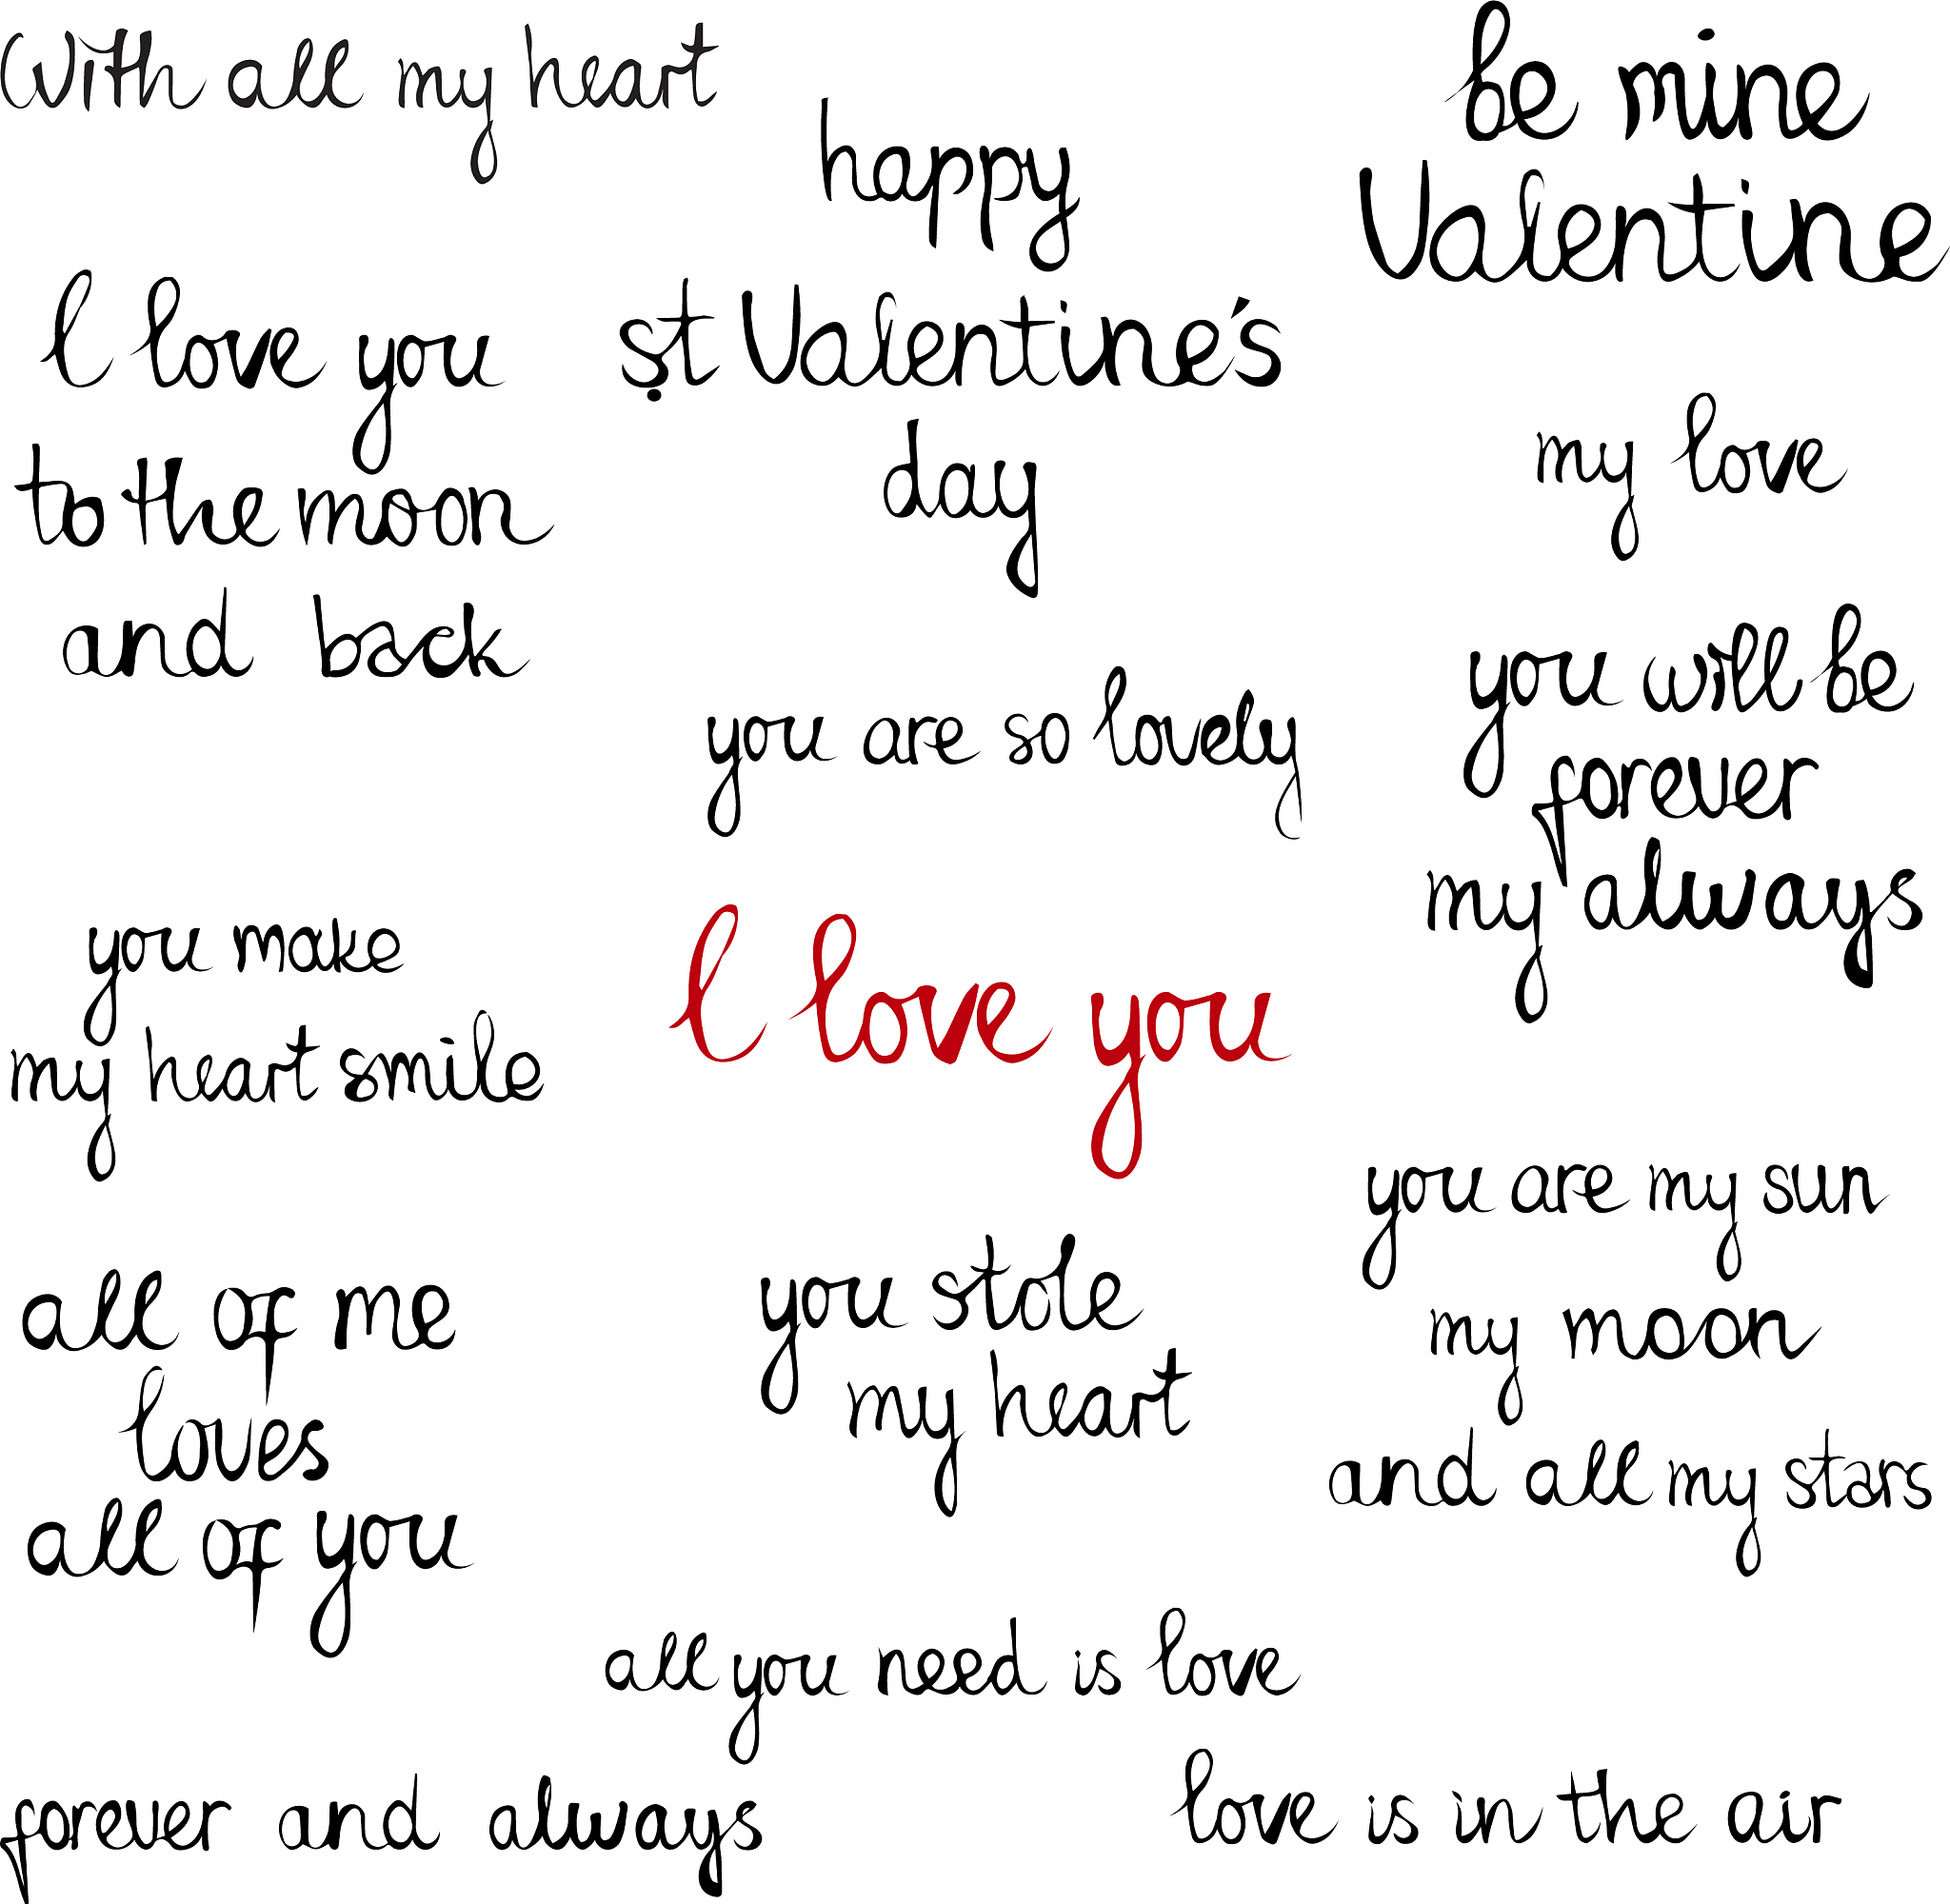 With all my heart
happy
st Valentine's
day
be mine
Valentine
I love you
to the moon
and back
my love
you are so lovely
you will be
forever
my always
you make
my heart smile
I love you
you are my sun
my moon
and all my stars
you stole
my heart
all of me
loves
all of you
all you need is love
forever and always
love is in the air